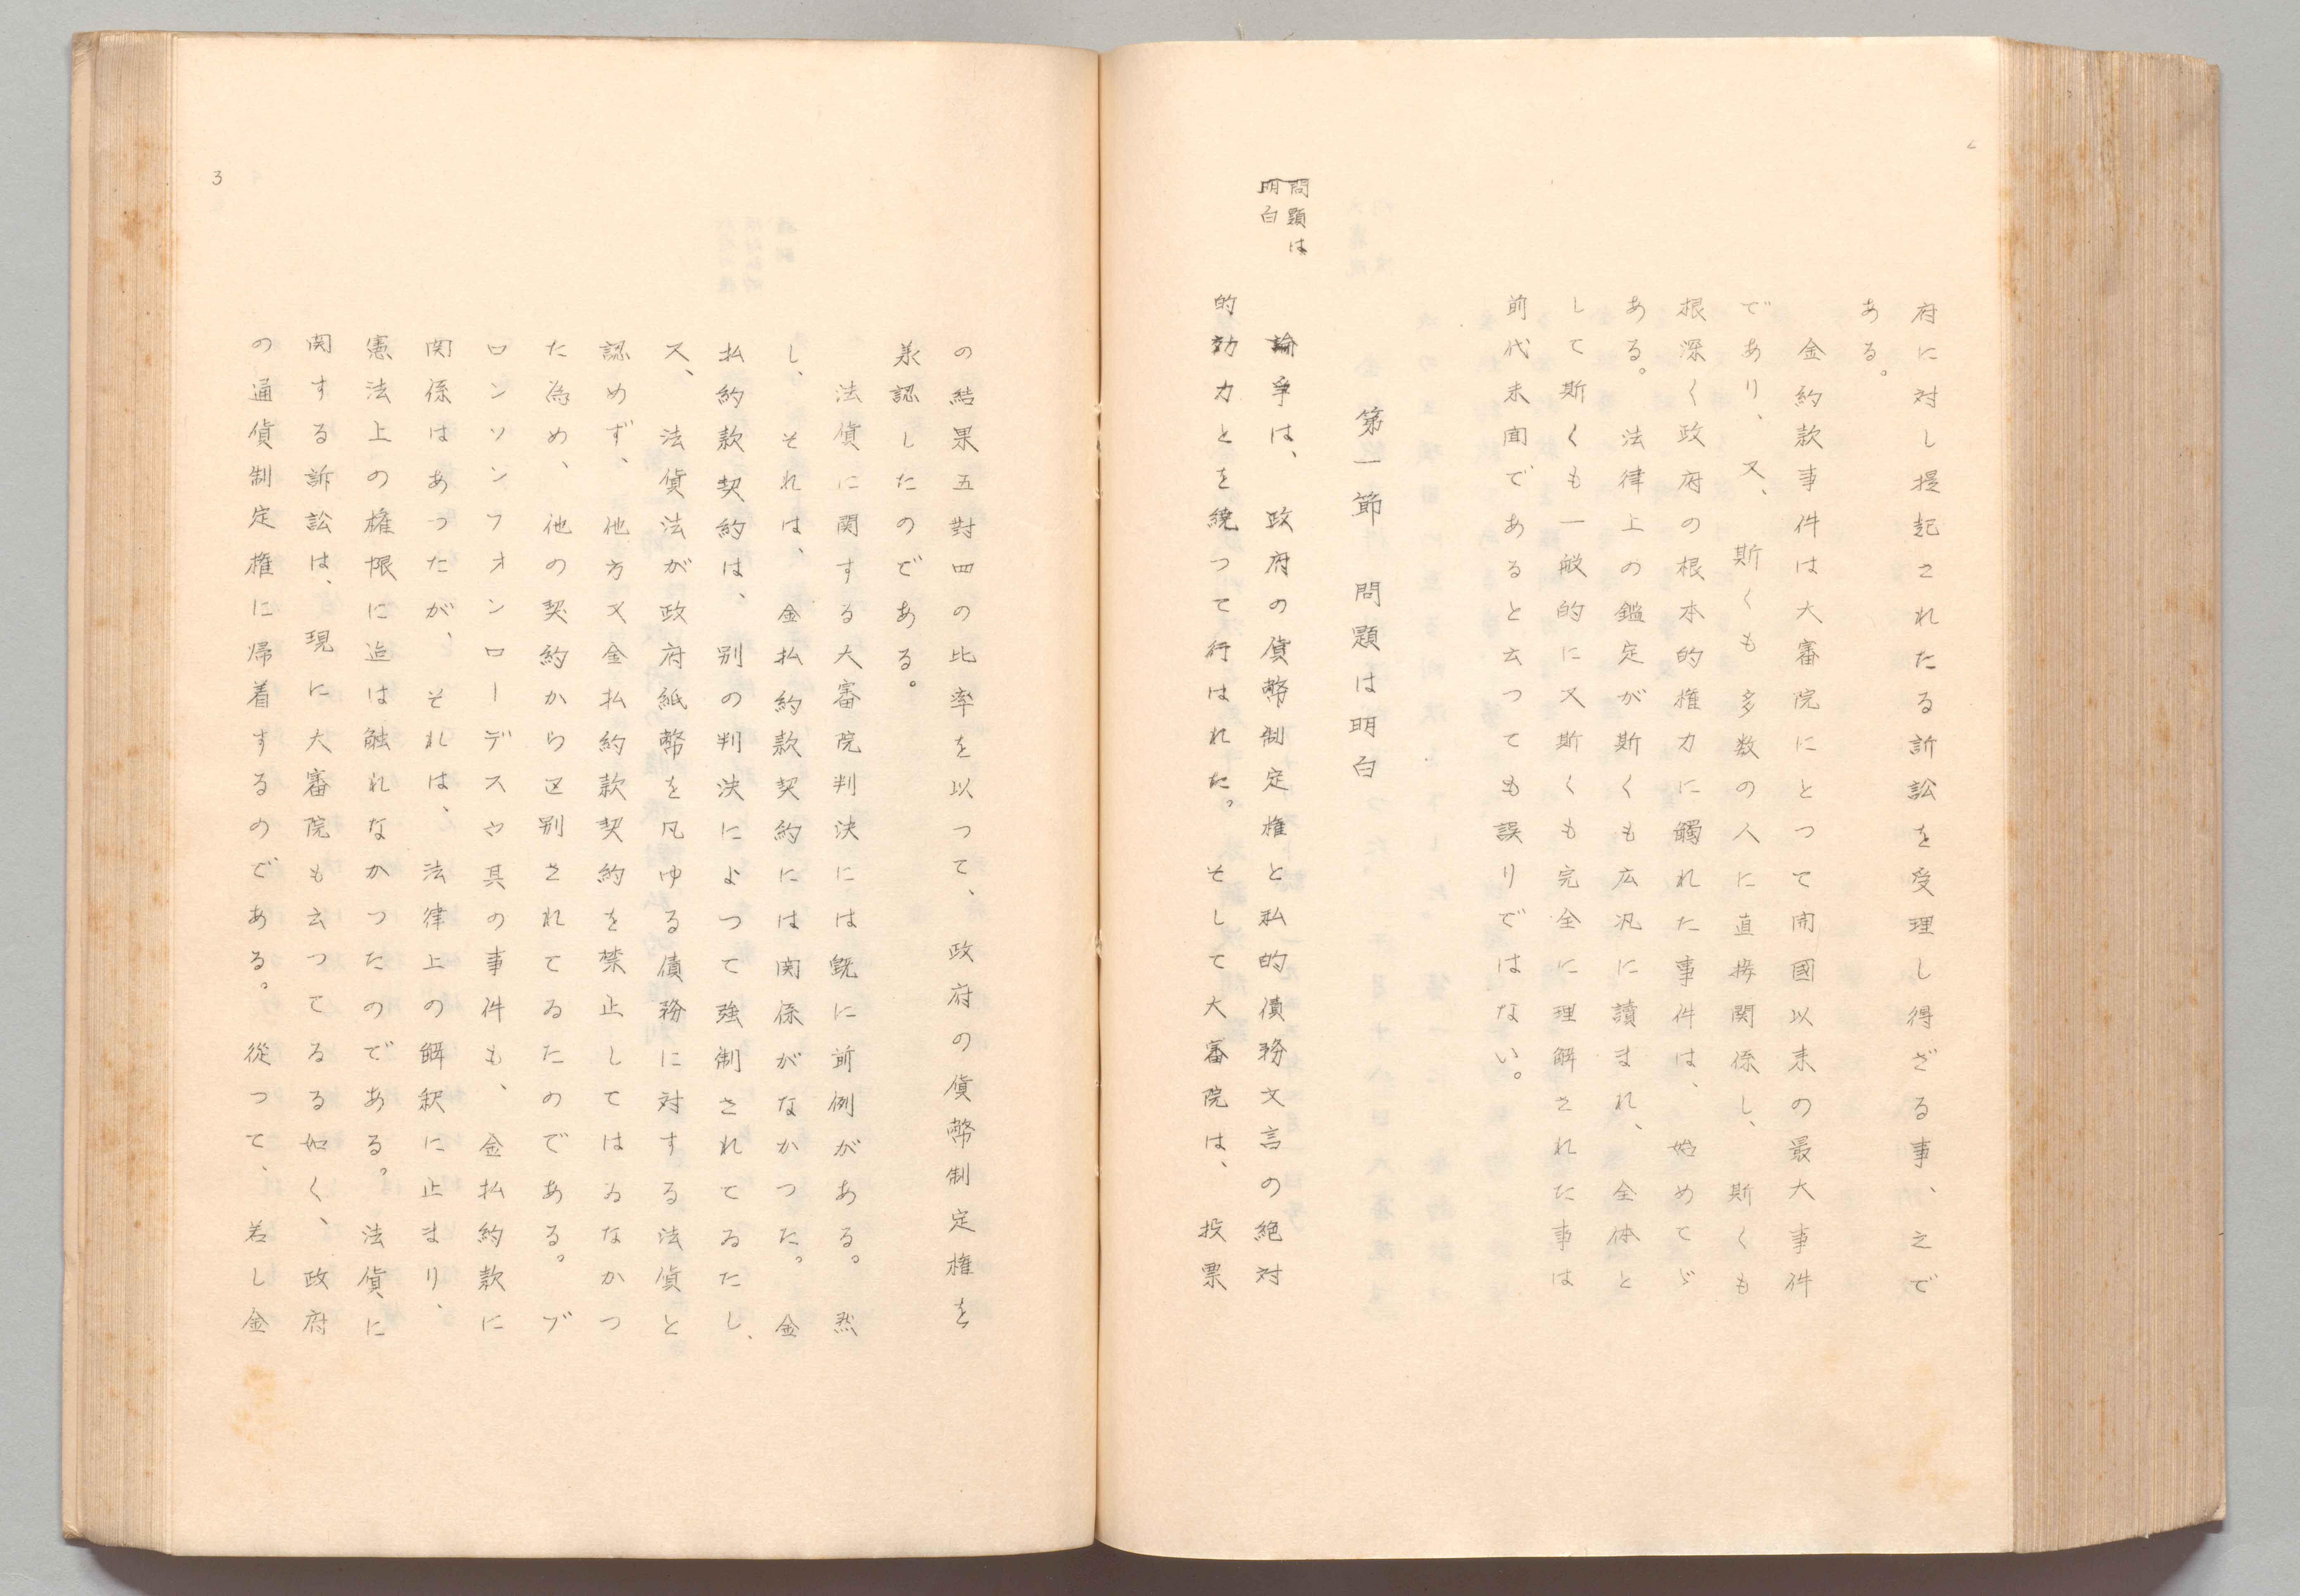 2
府に対し提起されたる訴訟を受理し得ざる事、之で
ある。
金約款事件は大審院にとつて開國以来の最大事件
であり、又、斯くも多数の人に直接関係し、斯くも
根深く政府の根本的権力に觸れた事件は、始めてゞ
ある。法律上の鑑定が斯くも広汎に讀まれ、全体と
して斯くも一般的に又斯くも完全に理解された事は
前代未聞であると云つても誤りではない。
第一節　問題は明白
問題は
明白
論爭は、政府の貨幣制定権と私的債務文言の絶対
的効力とを繞つて行はれた。そして大審院は、投票
の結果五對四の比率を以つて、政府の貨幣制定権を
承認したのである。
法貨に関する大審院判決には既に前例がある。然
し、それは、金払約款契約には関係がなかつた。金
払約款契約は、別の判決によつて強制されてゐたし、
又、法貨法が政府紙幣を凡ゆる債務に対する法貨と
認めず、他方又金払約款契約を禁止してはゐなかつ
た為め、他の契約から区別されてゐたのである。ブ
ロンソンフオンローデスウ其の事件も、金払約款に
関係はあつたが、それは、法律上の解釈に止まり、
憲法上の権限に迄は触れなかつたのである。法貨に
関する訴訟は、現に大審院も云つてゐる如く、政府
の通貨制定権に帰着するのである。從つて、若し金
3